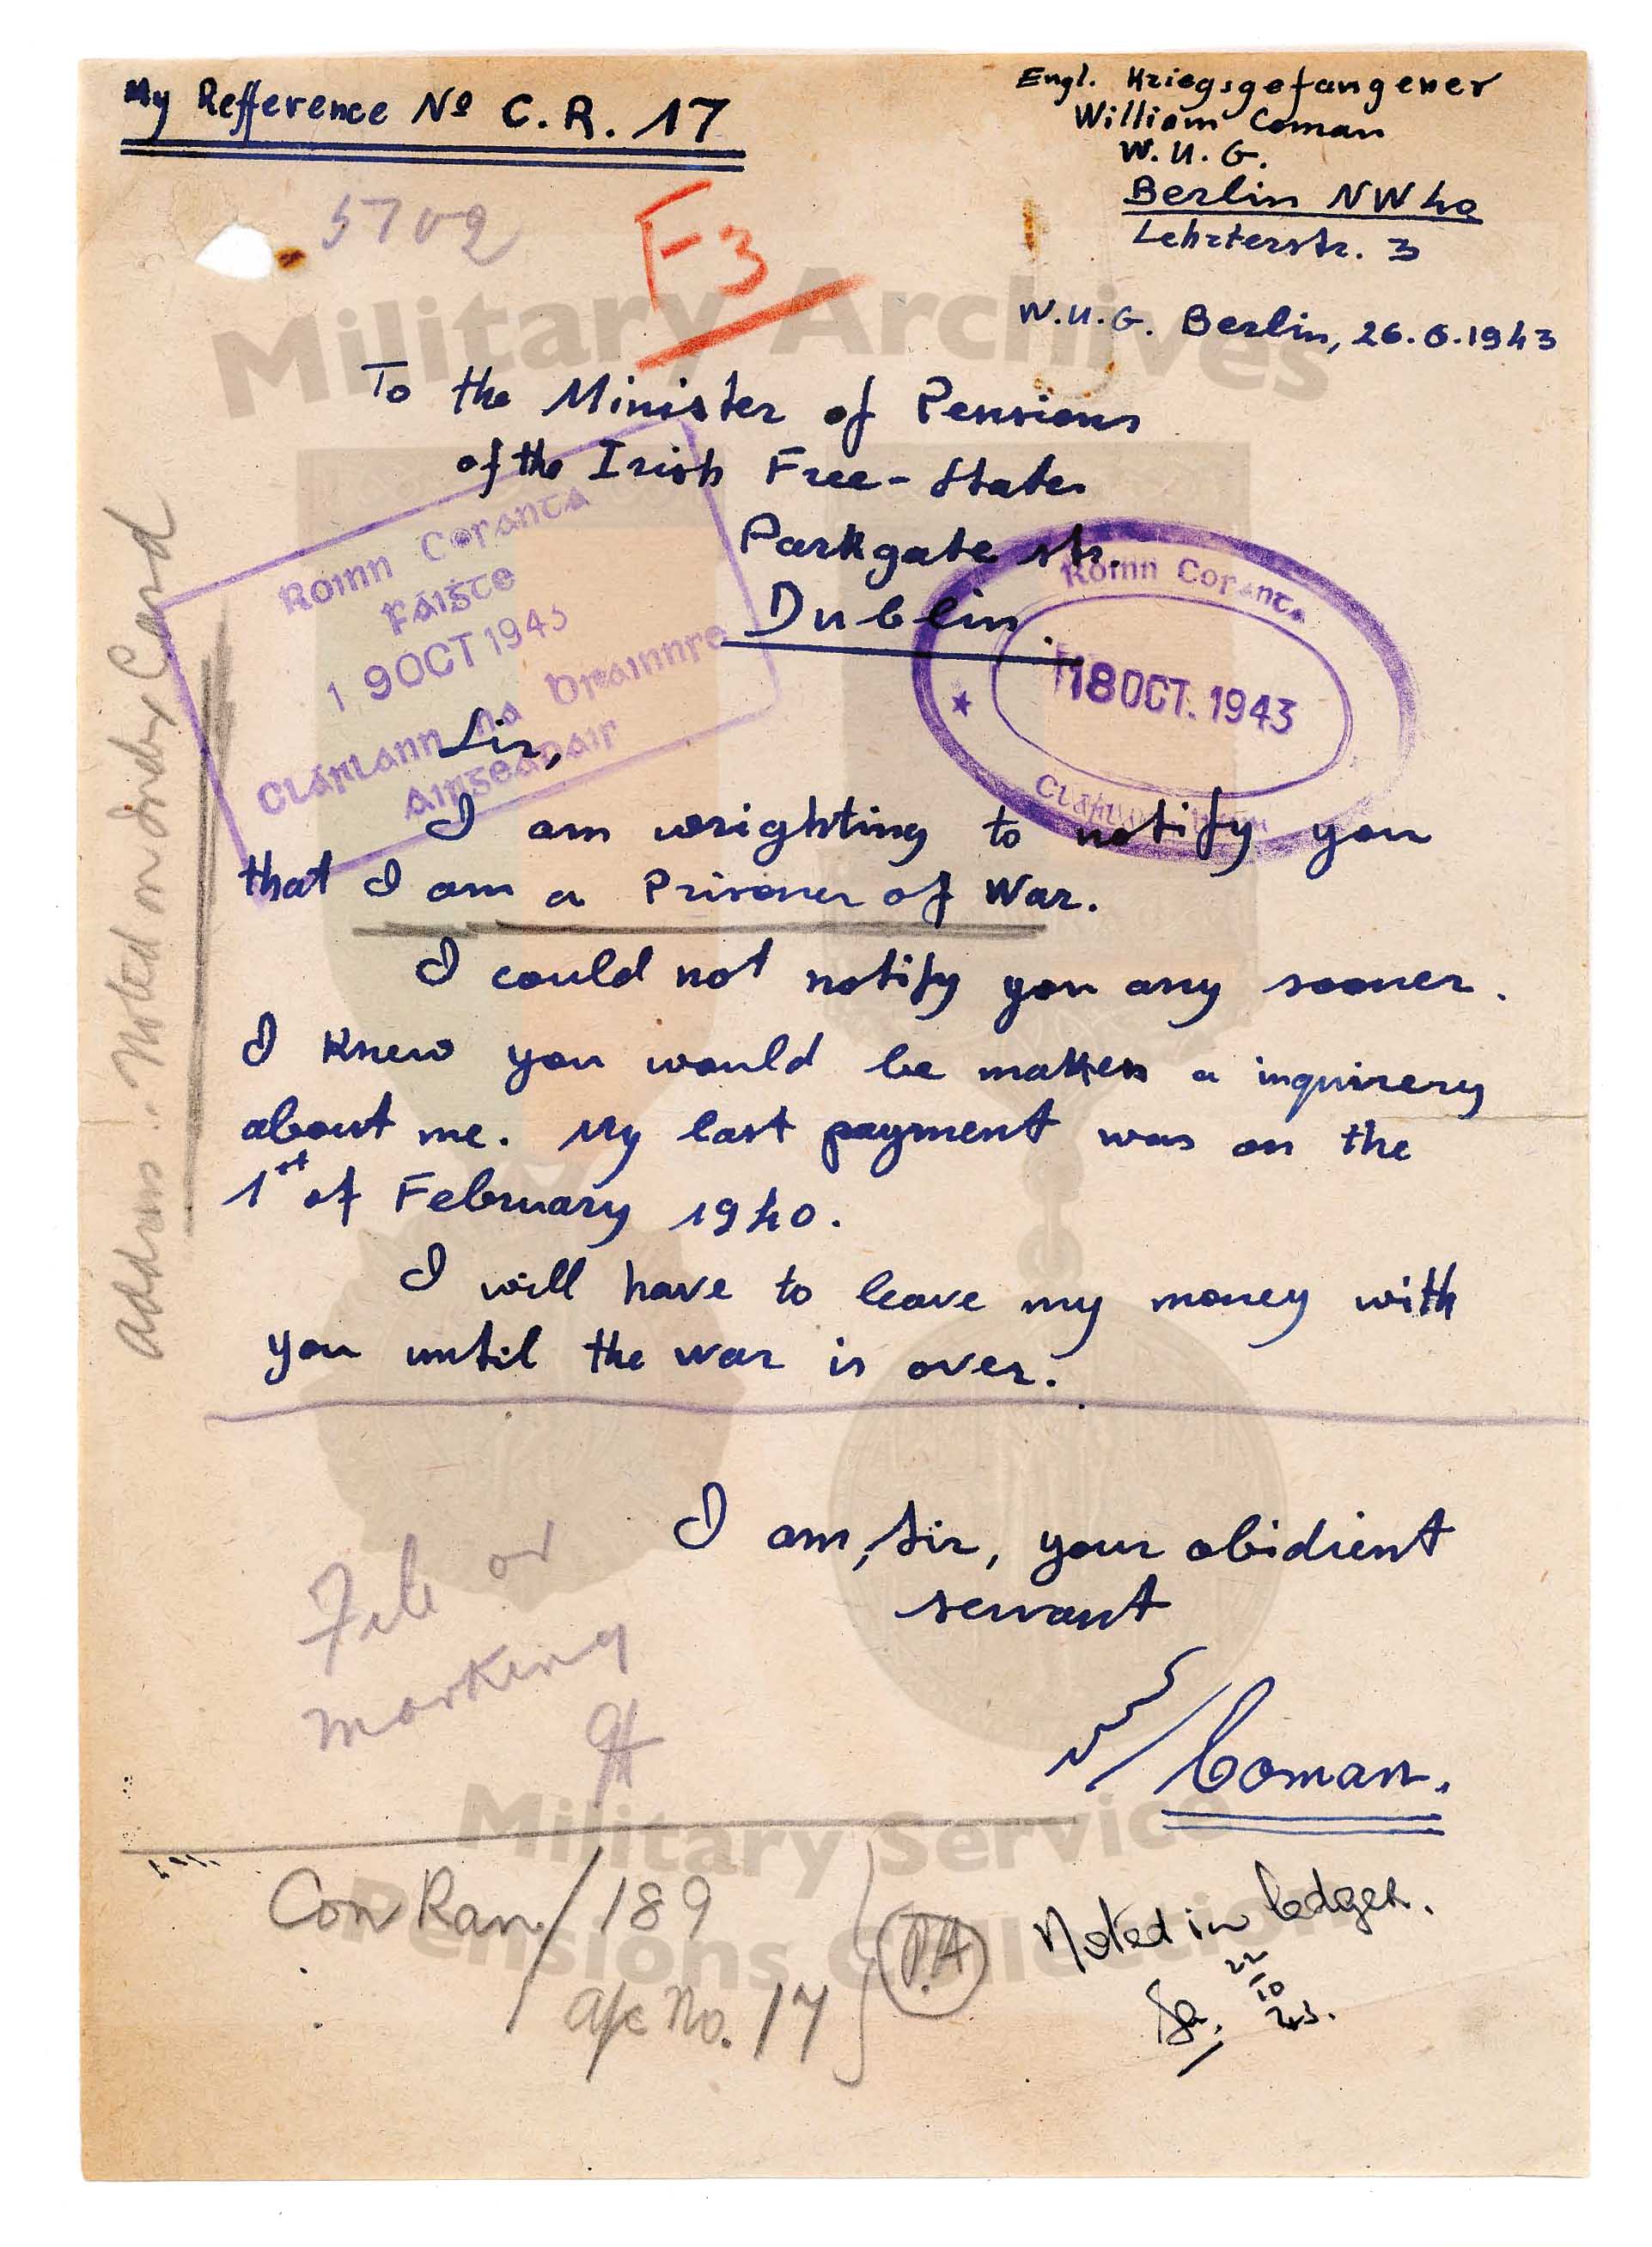 My Refference Nº C.R. 17
Engl. Kriegsgefangener
William Coman
W.U.G.
Berlin NW 40
Lehrterstr. 3
5702
F3
W.U.G. Berlin, 26.6.1943
Military Archives
To the Minister of Pensions
of the Irish Free-State
Parkgate str.
Dublin.
Roinn Coranta
Fáiste
19 OCT 1943
Clárlann na
Airgeadair
Roinn Coranta
18 OCT. 1943
Address. Noted on Index Card
Sir,
I am wrighting to notify you
that I am a Prisoner of War.
I could not notify you any sooner.
I knew you would be maken a inquirery
about me. My last payment was on the
1st of February 1940.
I will have to leave my money with
you until the war is over.
I am, Sir, your obidient
servant
W/Coman.
File
marking
Military Service
Pensions Collection
Con Ran/189
a/c No. 17
P.A
Noted in ledger.
22
10
43.